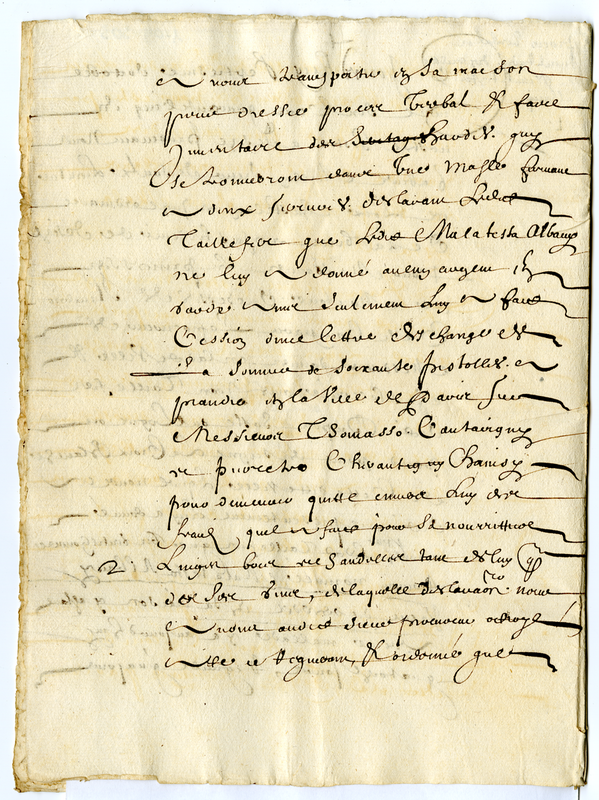 et nous transporter en sa maison
pour dresser proces verbal & faire
Inventaire des hardes quy
se trouveront dans une malle fermant
a deux serrures declarant ledict
Taillefer que ledit Malatesta Albany
ne luy a donné aucun argent
seulement luy a faict
Cession d'une lettre d'eschange de
la somme de soixante pistolles a
prandre en la ville de Paris sur
Messieurs Thomasso Cantarigny
et Chamoy
pour demeurer quitte envers luy des
frais quel a faict pour sa nourriture
2 Linges bois et chandelles tant de luy que
des siens, de laquelle declaration nous
et nous audict sieur procureur octroyé
acte & ordonné que